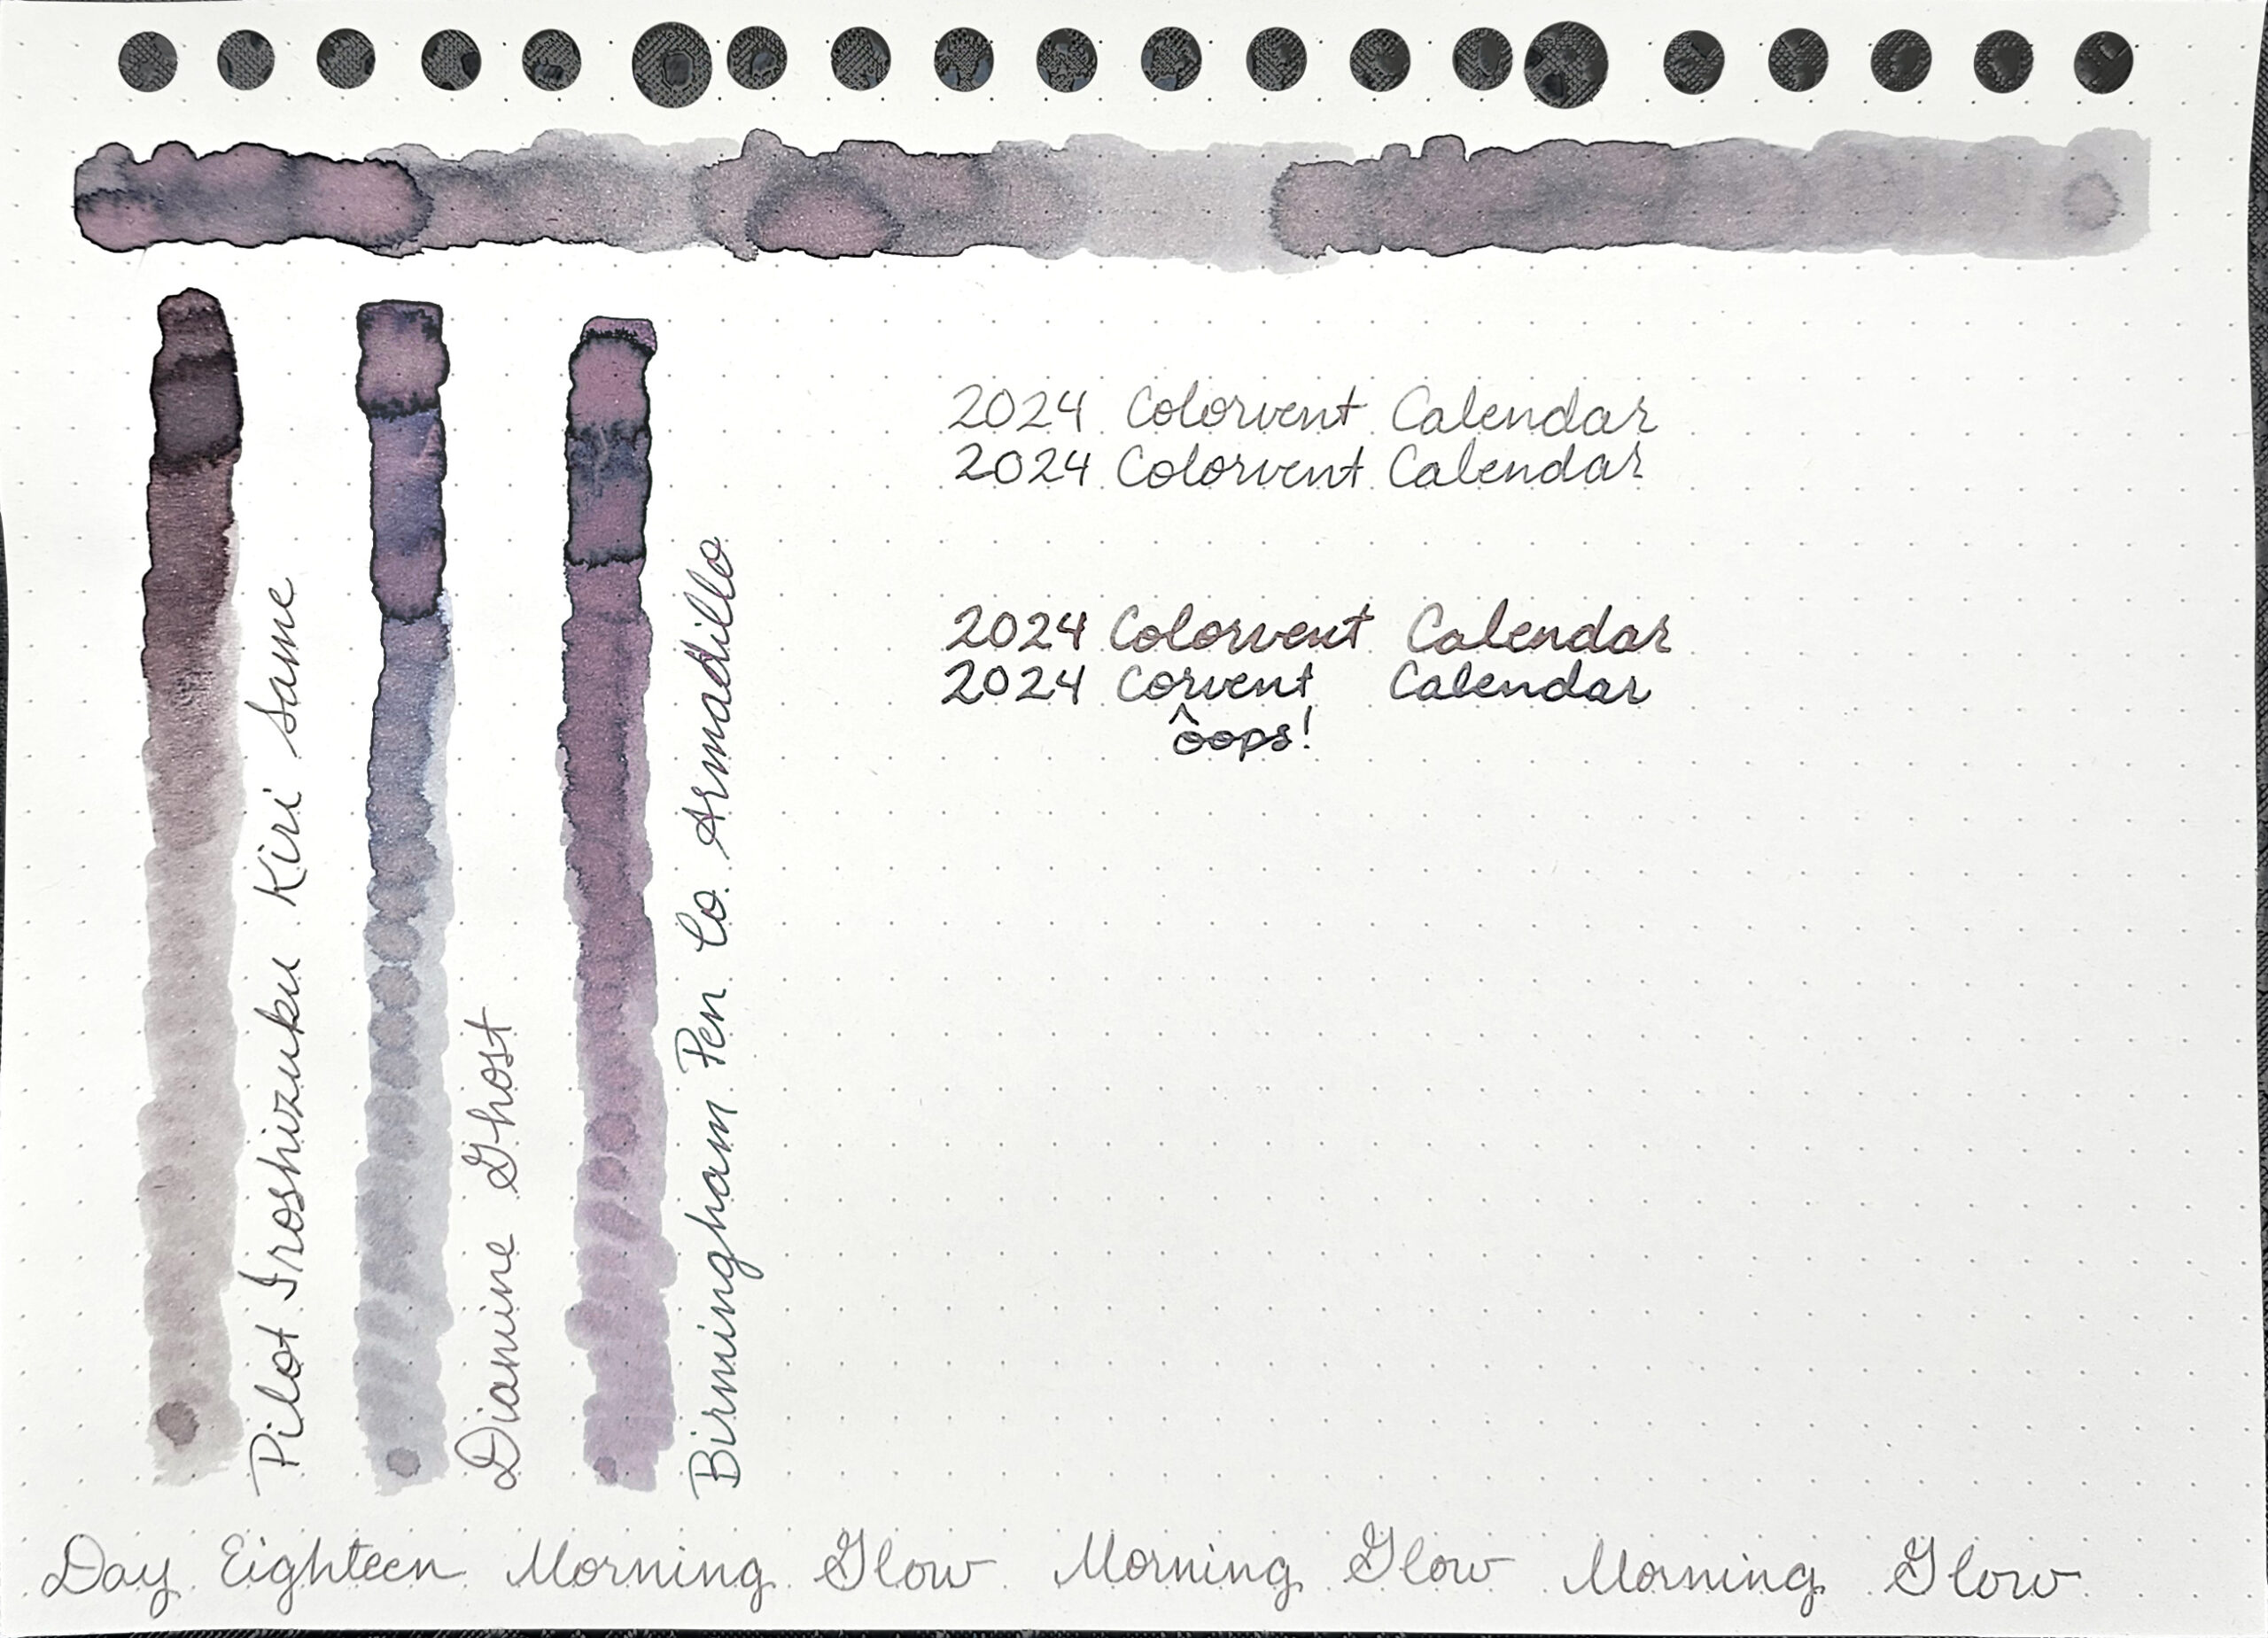 2024 Colorvent Calendar
2024 Colorvent Calendar
2024 Colorvent Calendar
2024 Corvent Calendar
^
oops!
Pilot Iroshizuku Kiri Same
Diamine Ghost
Birmingham Pen Co. Armadillo
Day Eighteen Morning Glow Morning Glow Morning Glow